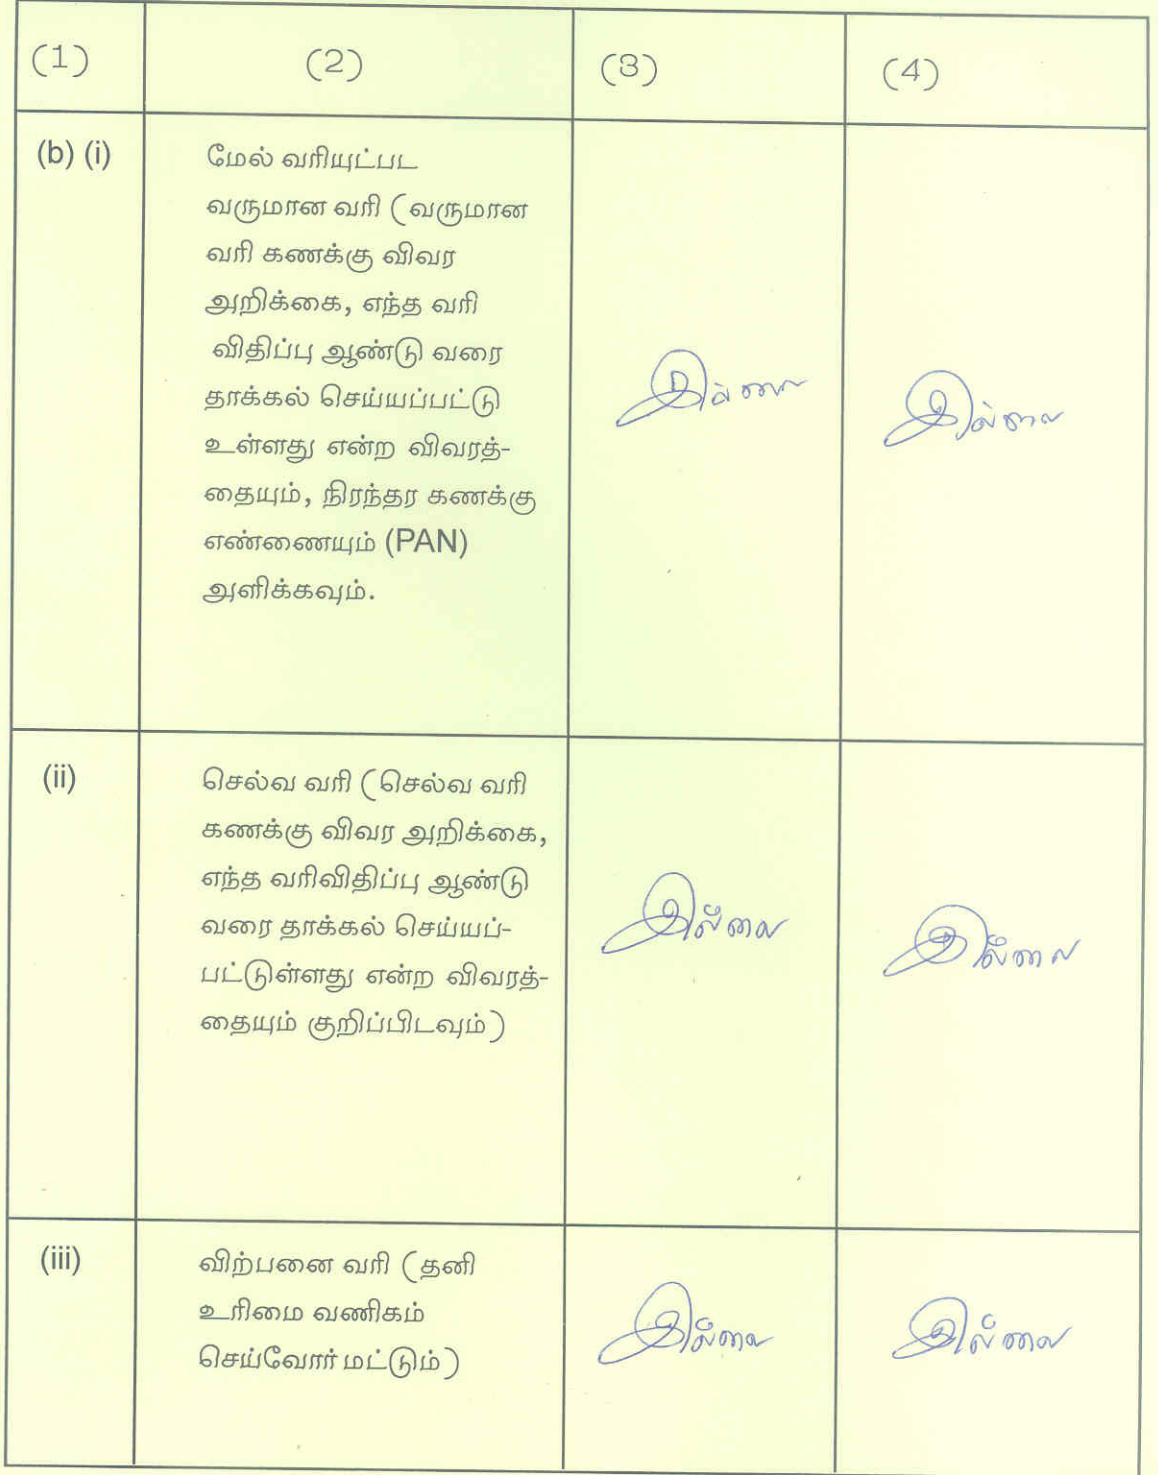 (1) (2) (3) (4)
(b) (i)
மேல் வரியுட்பட
வருமான வரி (வருமான
வரி கணக்கு விவர
அறிக்கை, எந்த வரி
விதிப்பு ஆண்டு வரை
தாக்கல் செய்யப்பட்டு
உள்ளது என்ற விவரத்-
தையும், நிரந்தர கணக்கு
எண்ணையும் (PAN)
அளிக்கவும்.
இல்லை
இல்லை
(ii)
செல்வ வரி (செல்வ வரி
கணக்கு விவர அறிக்கை,
எந்த வரிவிதிப்பு ஆண்டு
வரை தாக்கல் செய்யப்-
பட்டுள்ளது என்ற விவரத்-
தையும் குறிப்பிடவும்)
இல்லை
இல்லை
(iii)
விற்பனை வரி (தனி
உரிமை வணிகம்
செய்வோர் மட்டும்)
இல்லை
இல்லை